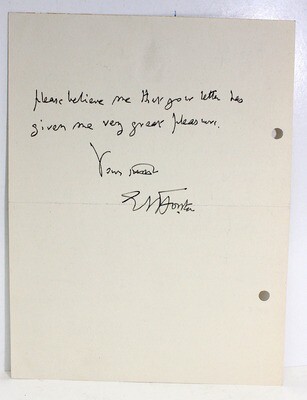 please believe me that your letter has
given me very great pleasure.
Yours
EM Forster